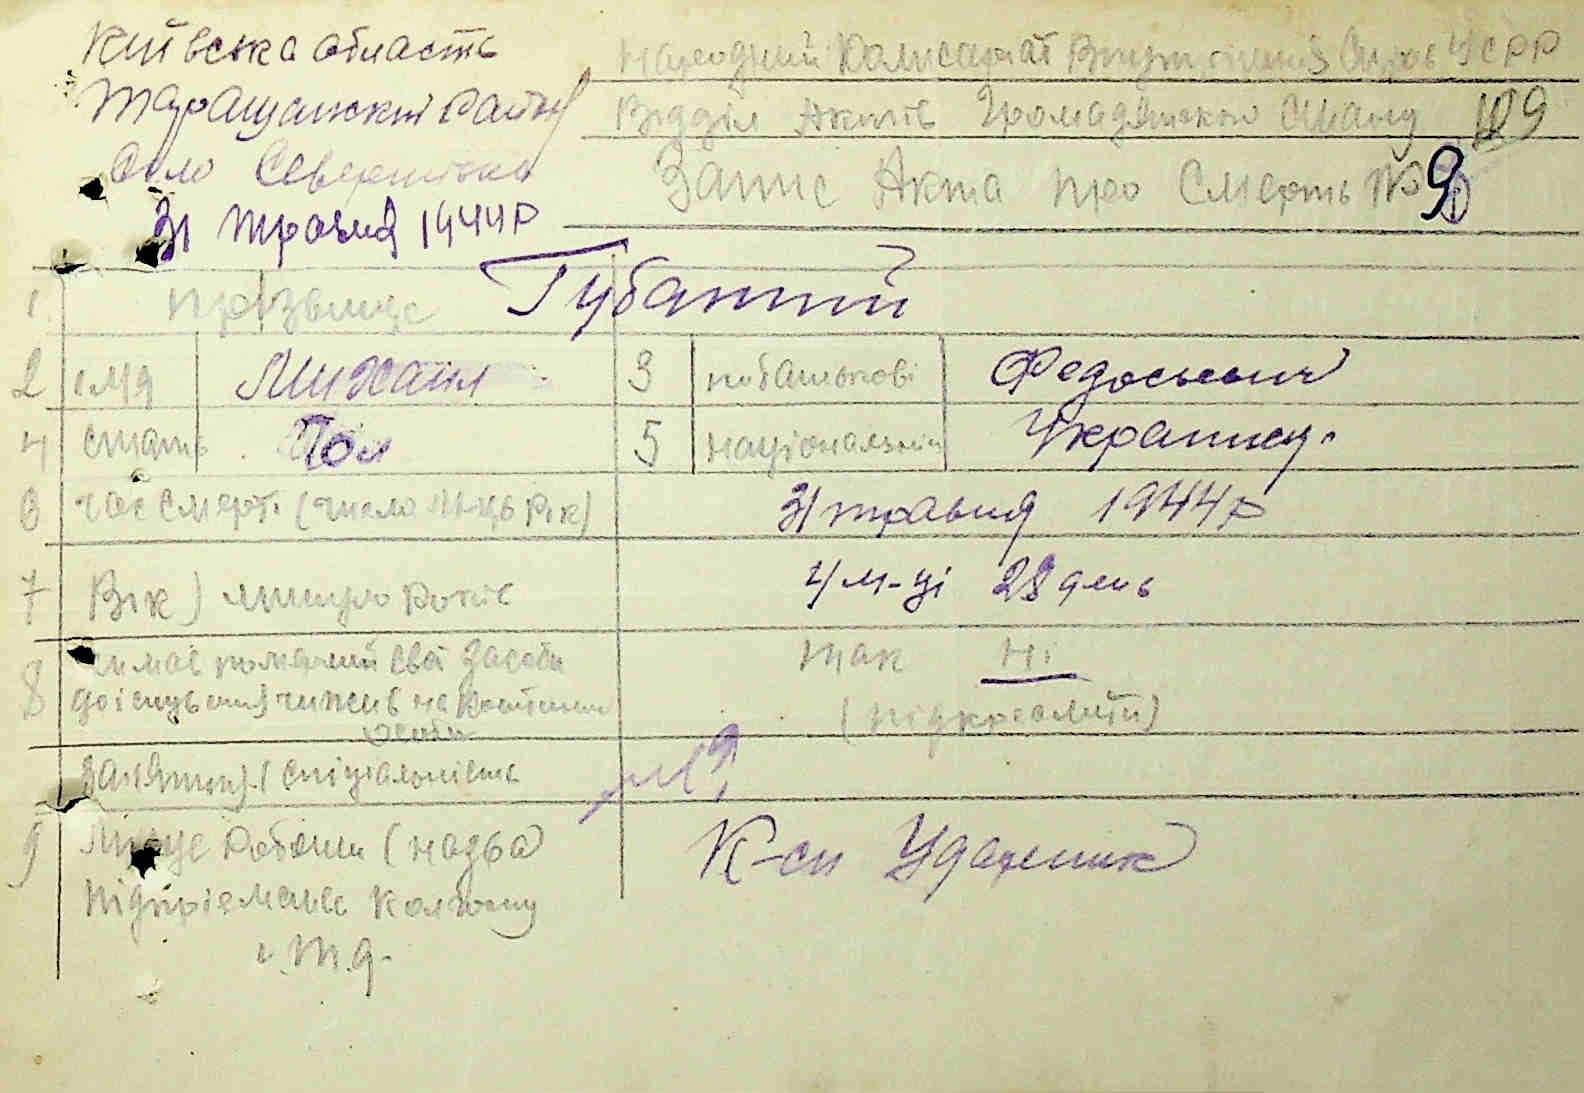 Київська область
Таращанский район
Село Северинівка
31 травня 1944р
Народний Комисаріат Внутрішніх Справ УСРР
Відділ Актів Громадянського Стану
Запис Акта про Смерть № 9
1 прізвище Губантий
2 імя Михаил 3 побатькові Федосьевич
4 стать Пол 5 національність Украинец.
6 час смерті (число м-ць рік) 31 травня 1944р
7 Вік) минуло років 4 м-ці 28 день
8 чи має померший свої засоби так ні
до існування чи жив на
особи (підкреслити)
заняття і спіціальність
9 Місце роботи (назва К-сп Ударник
підпріемства колгоспу
і.т.д.